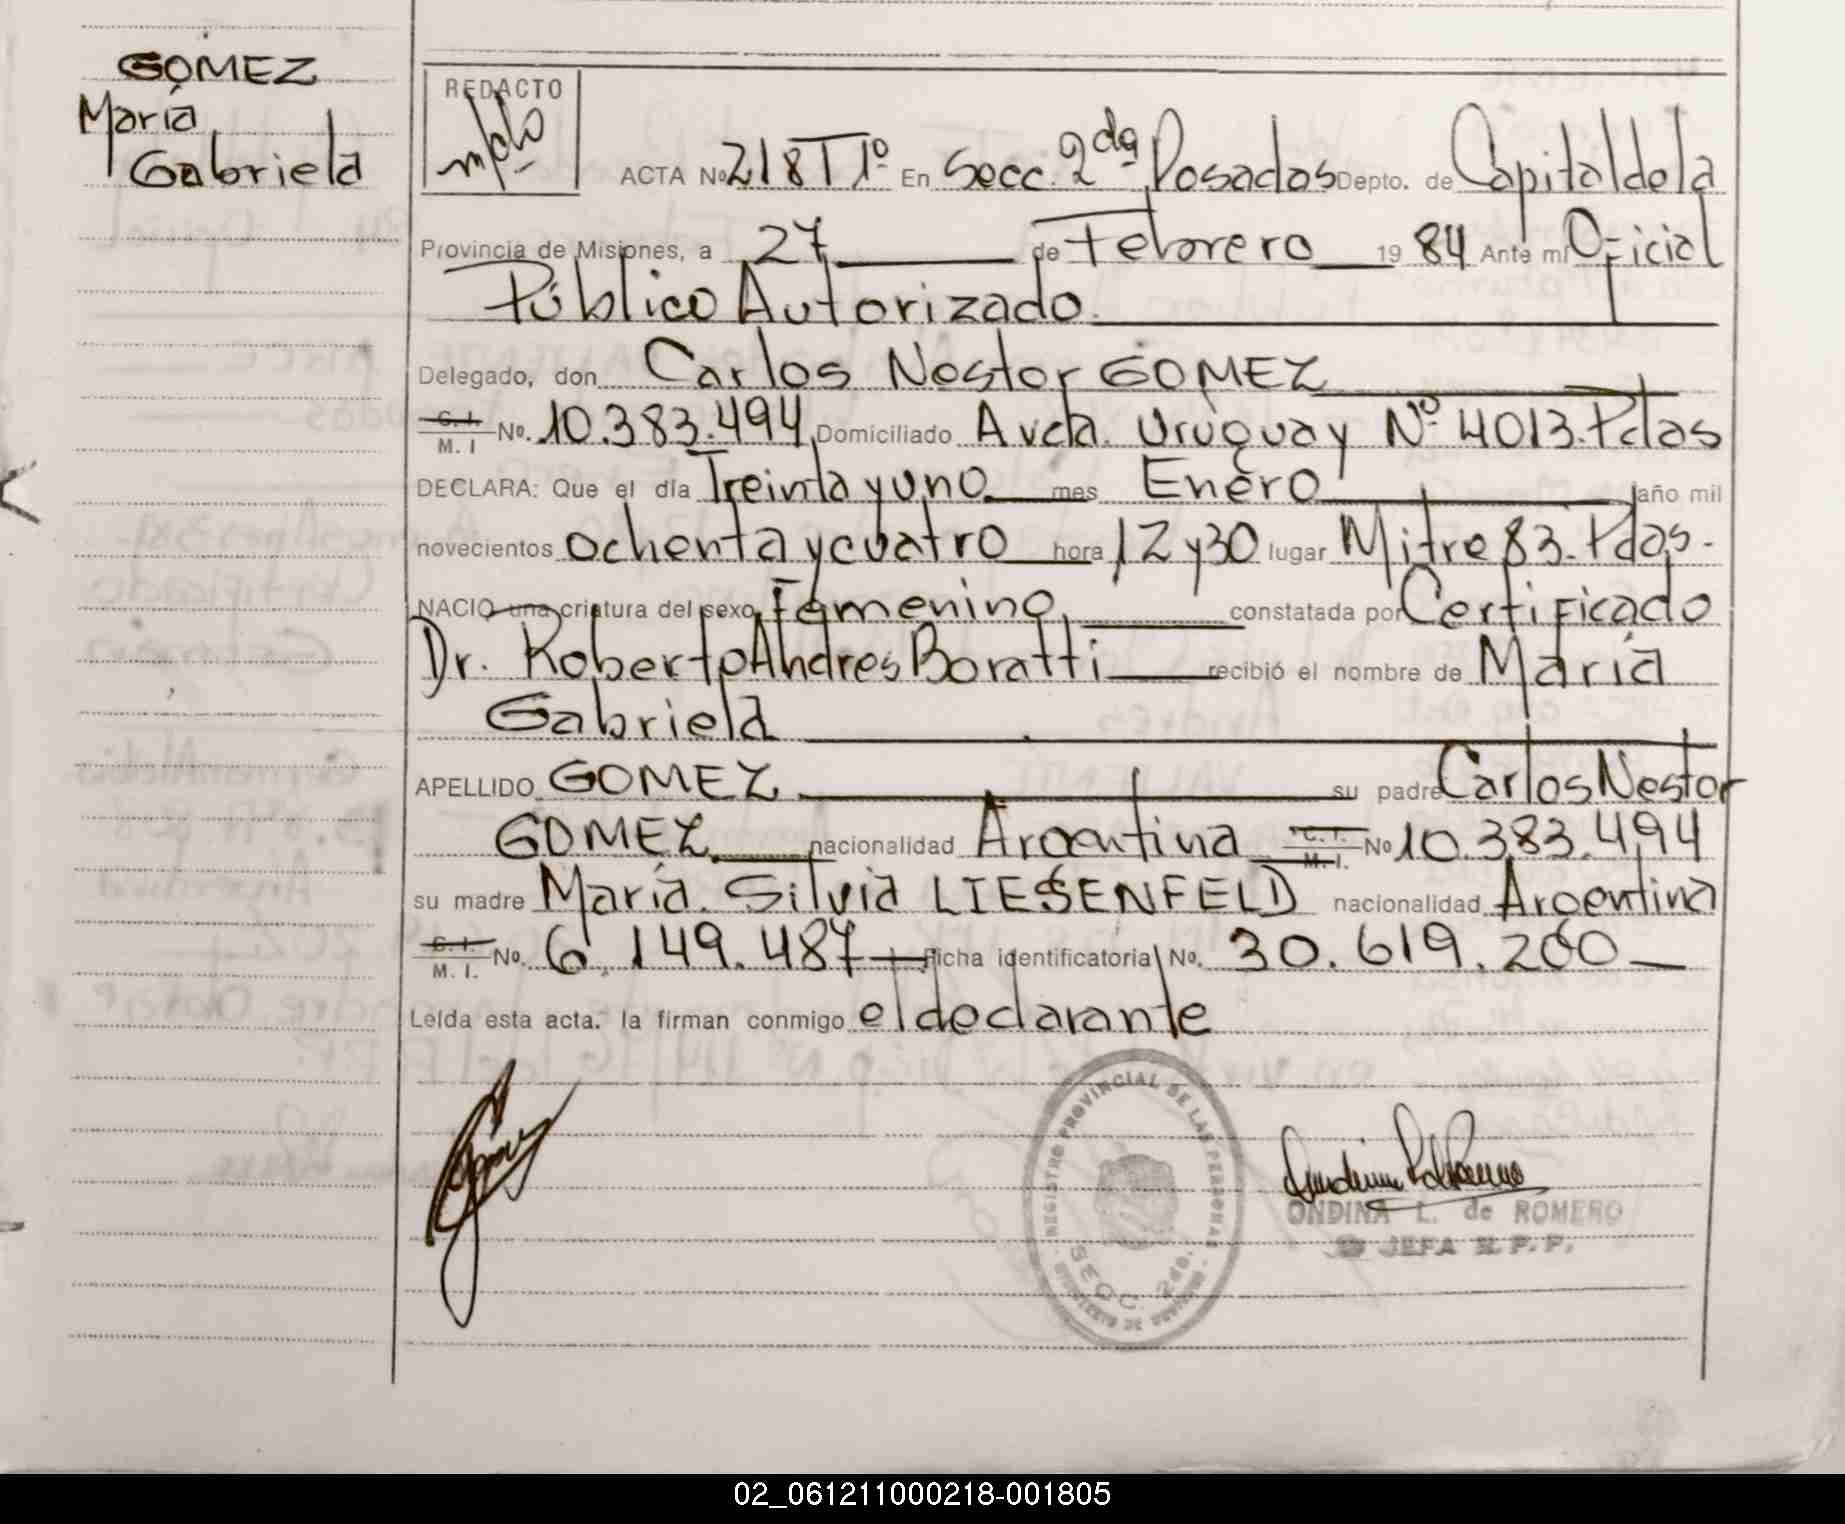 GOMEZ
María
Gabriela
REDACTO
ACTA Nº 218 Tº 1º En Secc. 2da Posadas Depto. de Capital de la
Provincia de Misiones, a 27 de Febrero 1984 Ante mí Oficial
Público Autorizado.
Delegado, don Carlos Nestor GOMEZ
C. I. M. I No. 10.383.494 Domiciliado Avda. Uruguay Nº 4013. Pdas
DECLARA: Que el día Treinta y uno mes Enero año mil
novecientos ochenta y cuatro hora 12 y 30 lugar Mitre 83. Pdas.
NACIO una criatura del sexo Femenino constatada por Certificado
Dr. Roberto Andres Boratti recibió el nombre de María
Gabriela
APELLIDO GOMEZ su padre Carlos Nestor
GOMEZ nacionalidad Argentina C. I. M. I. No 10.383.494
su madre María Silvia LIESENFELD nacionalidad Argentina
C. I. M. I. No. 6.149.487 Ficha identificatoria No. 30.619.260
Leída esta acta. la firman conmigo el declarante
REGISTRO PROVINCIAL DE LAS PERSONAS
SECC. 2da.
ONDINA L. de ROMERO
JEFA R.P.P.
02_061211000218-001805